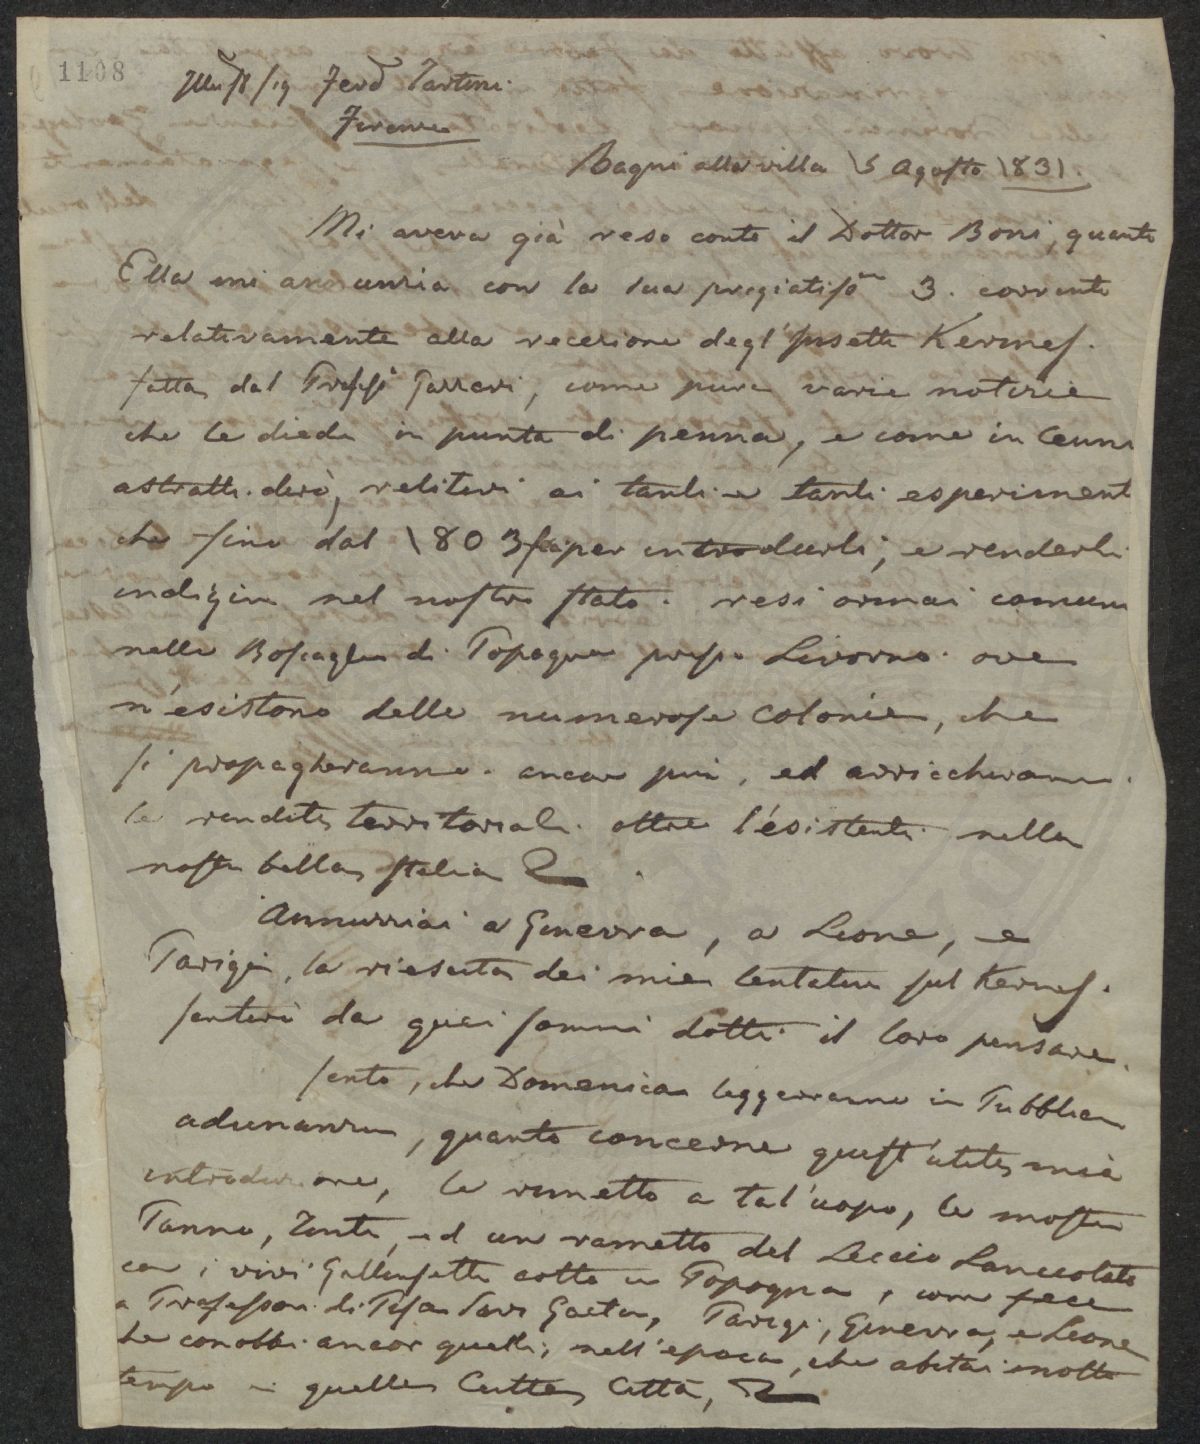 1108
Ill. Sig Ferd Tartini
Firenze
Bagni alla villa 5 Agosto 1831.
Mi aveva già reso conto il Dottor Boni, quanto
Ella mi annunzia con la sua pregiatis 3. corrente
relativamente alla recezione degl'Insetti Kermes.
fatta dal Profess Gazzeri, come pure varie notizie
che le diede in punta di penna, e come in
astratto. dirò, relativi ai tanti e tanti esperiment
che fino dal 1803 per introdurli, e renderli
indigini nel nostro stato. resi ormai comuni
nelle Boscaglie di Popogna presso Livorno. ove
n'esistono delle numerose colonie, che
si propagheranno. ancor più, ed arricchiranno.
le rendite territoriali. oltre l'esistenti nella
nostra bella Italia
Annunziai a Ginevra, a Lione, e
Parigi, la riescita dei miei tentativi sul Kermes.
sentirò da quei sommi dotti il loro pensare.
Sento, che Domenica leggeranno in Pubblica
adunanza, quanto concerne quest'utile mia
introduzione, le rimetto a tal'uopo, le mostre
Panno, Tinte, ed un rametto del Leccio Lanceolato
con i vivi Gallinsetti colto in Popogna, come feci
a Professori di Pisa Savi Gaetano, Parigi, Ginevra, e Lione
che conobbi ancor quelli, nell'epoca, che abitai molto
tempo in quelle Città,